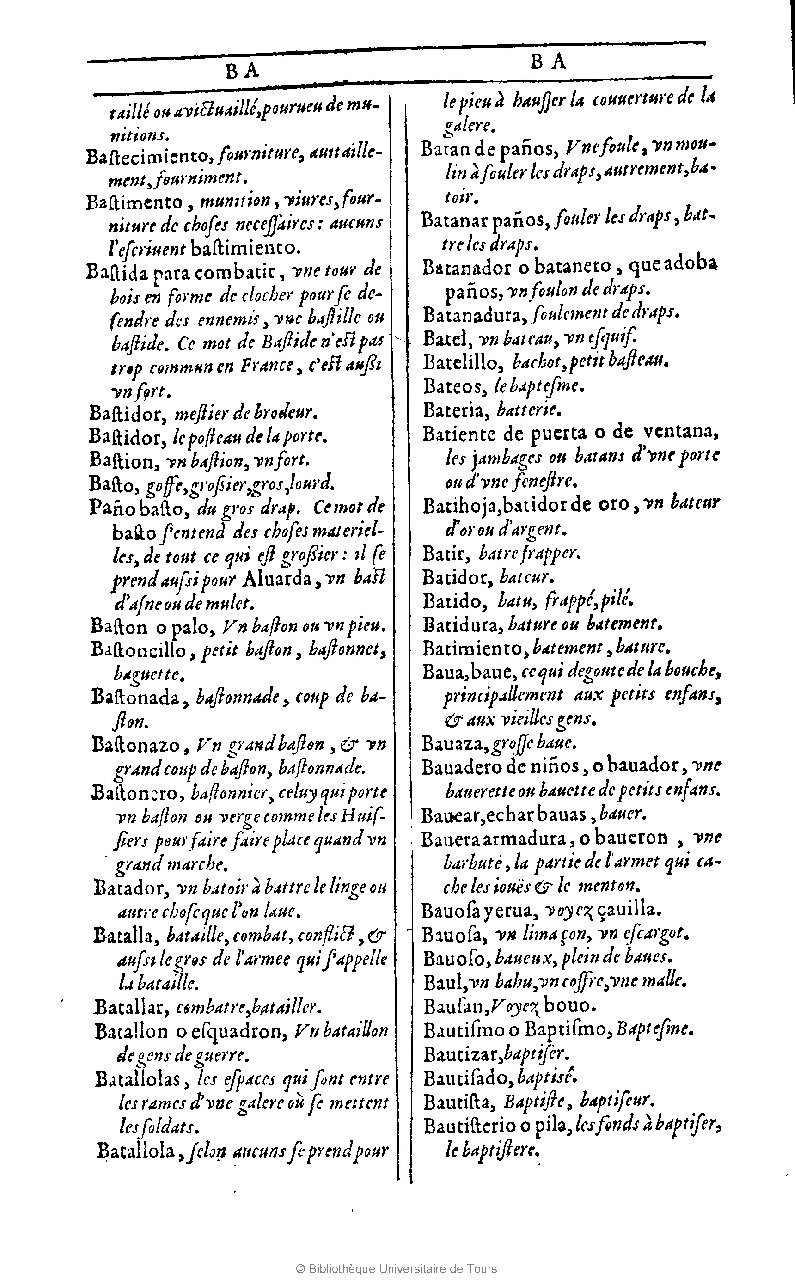 BA
taillé ou avictuaillé,pourueu de mu-
nitions.
Baſtecimiento, fourniture, auitaille-
ment, fourniment.
Baſtimento, munition, viures, four-
niture de choſes neceſſaires: aucuns
l'eſcriuent baſtimiento.
Baſtida para combatir, vne tour de
bois en forme de clocher pour ſe de-
fendre des ennemis, vne baſtille ou
baſtide. Ce mot de Baſtide n'eſt pas
trop commun en France, c'eſt auſſi
vn fort.
Baſtidor, meſtier de brodeur.
Baſtidor, le poſteau de la porte.
Baſtion, vn baſtion, vn fort.
Baſto, goffe, groſsier, gros, lourd.
Paño baſto, du gros drap. Ce mot de
baſto ſ'entend des choſes materiel-
les, de tout ce qui eſt groſsier: il ſe
prend auſsi pour Aluarda, vn baſt
d'aſne ou de mulet.
Baſton o palo, Vn baſton ou vn pieu.
Baſtoncillo, petit baſton, baſtonnet,
baguette.
Baſtonada, baſtonnade, coup de ba-
ſton.
Baſtonazo, Vn grand baſton, & vn
grand coup de baſton, baſtonnade.
Baſtonero, baſtonnier, celuy qui porte
vn baſton ou verge comme les Huiſ-
ſiers pour faire faire place quand vn
grand marche.
Batador, vn batoir à battre le linge ou
autre choſe que l'on laue.
Batalla, bataille, combat, conflict, &
auſsi le gros de l'armee qui ſ'appelle
la bataille.
Batallar, combatre, batailler.
Batallon o eſquadron, Vn bataillon
de gens de guerre.
Batallolas, les eſpaces qui ſont entre
les rames d'vne galere où ſe mettent
les ſoldats.
Batallola, ſelon aucuns ſe prend pour
BA
le pieu à hauſſer la couuerture de la
galere.
Batan de paños, Vne foule, vn mou-
lin à fouler les draps, autrement, ba-
toir.
Batanar paños, fouler les draps, bat-
tre les draps.
Batanador o batanero, que adoba
paños, vn foulon de draps.
Batanadura, foulement de draps.
Batel, vn bateau, vn eſquif.
Batelillo, bachot, petit baſteau.
Bateos, le bapteſme.
Bateria, batterie.
Batiente de puerta o de ventana,
les jambages ou batans d'vne porte
ou d'vne feneſtre.
Batihoja, batidor de oro, vn bateur
d'or ou d'argent.
Batir, batre frapper.
Batidor, bateur.
Batido, batu, frappé, pilé.
Batidura, bature ou batement.
Batimiento, batement, bature.
Baua, baue, ce qui degoute de la bouche,
principallement aux petits enfans,
& aux vieilles gens.
Bauaza, groſſe baue.
Bauadero de niños, o bauador, vne
bauerette ou bauette de petits enfans.
Bauear, echar bauas, bauer.
Bauera armadura, o baueron, vne
barbute, la partie de l'armet qui ca-
che les iouës & le menton.
Bauoſa yerua, voyez çauilla.
Bauoſa, vn limaçon, vn eſcargot.
Bauoſo, baueux, plein de baues.
Baul, vn bahu, vn coffre, vne malle.
Bauſan, Voyez bouo.
Bautiſmo o Baptiſmo, Bapteſme.
Bautizar, baptiſer.
Bautiſado, baptisé.
Bautiſta, Baptiſte, baptiſeur.
Bautiſterio o pila, les fonds à baptiſer,
le baptiſtere.
© Bibliothèque Universitaire de Tours